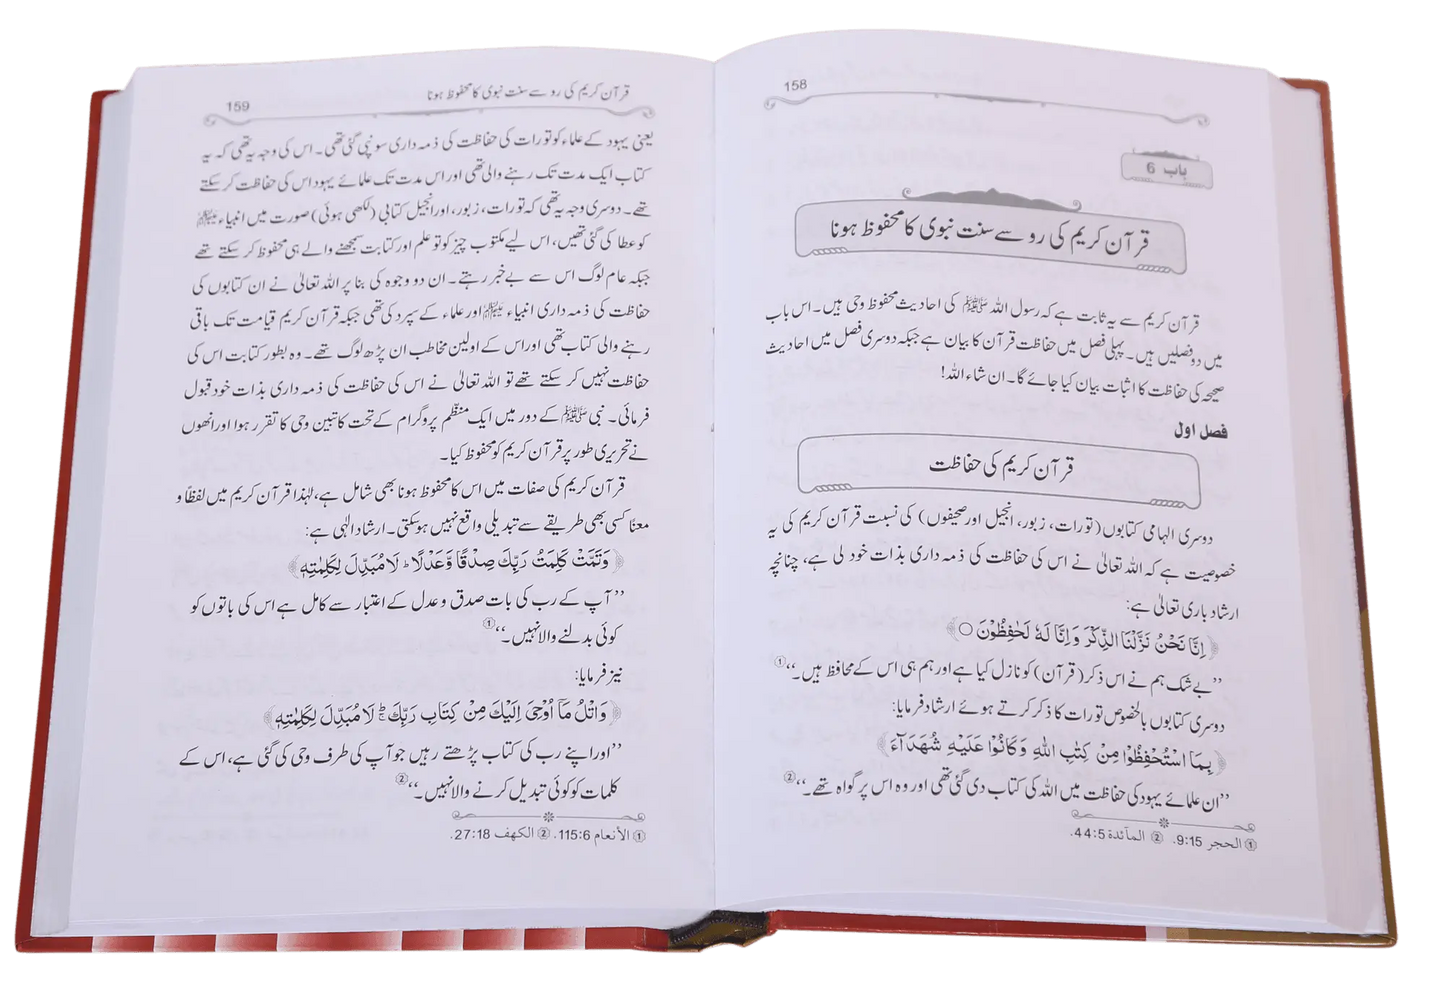 158
باب 6
قرآن کریم کی رو سے سنت نبوی کا محفوظ ہونا
قرآن کریم سے یہ ثابت ہے کہ رسول اللہ ﷺ کی احادیث محفوظ وحی ہیں۔ اس باب
میں دو فصلیں ہیں۔ پہلی فصل میں حفاظت قرآن کا بیان ہے جبکہ دوسری فصل میں احادیث
صحیحہ کی حفاظت کا اثبات بیان کیا جائے گا۔ ان شاء اللہ!
فصل اول
قرآن کریم کی حفاظت
دوسری الہامی کتابوں (تورات، زبور، انجیل اور صحیفوں) کی نسبت قرآن کریم کی یہ
خصوصیت ہے کہ اللہ تعالیٰ نے اس کی حفاظت کی ذمہ داری بذات خود لی ہے، چنانچہ
ارشاد باری تعالیٰ ہے:
﴿ اِنَّا نَحْنُ نَزَّلْنَا الذِّكْرَ وَ اِنَّا لَهٗ لَحٰفِظُوْنَ ○ ﴾
’’بے شک ہم نے اس ذکر (قرآن) کو نازل کیا ہے اور ہم ہی اس کے محافظ ہیں۔‘‘①
دوسری کتابوں بالخصوص تورات کا ذکر کرتے ہوئے ارشاد فرمایا:
﴿ بِمَا اسْتُحْفِظُوْا مِنْ كِتٰبِ اللّٰهِ وَ كَانُوْا عَلَيْهِ شُهَدَآءَ ﴾
’’ان علمائے یہود کی حفاظت میں اللہ کی کتاب دی گئی تھی اور وہ اس پر گواہ تھے۔‘‘②
① الحجر 9:15. ② المآئدة 44:5.
159
قرآن کریم کی رو سے سنت نبوی کا محفوظ ہونا
یعنی یہود کے علماء کو تورات کی حفاظت کی ذمہ داری سونپی گئی تھی۔ اس کی وجہ یہ تھی کہ یہ
کتاب ایک مدت تک رہنے والی تھی اور اس مدت تک علمائے یہود اس کی حفاظت کر سکتے
تھے۔ دوسری وجہ یہ تھی کہ تورات، زبور، اور انجیل کتابی (لکھی ہوئی) صورت میں انبیاء ﷺ
کو عطا کی گئی تھیں، اس لیے مکتوب چیز کو تو علم اور کتابت سمجھنے والے ہی محفوظ کر سکتے تھے
جبکہ عام لوگ اس سے بے خبر رہتے۔ ان دو وجوہ کی بنا پر اللہ تعالیٰ نے ان کتابوں کی
حفاظت کی ذمہ داری انبیاء ﷺ اور علماء کے سپرد کی تھی جبکہ قرآن کریم قیامت تک باقی
رہنے والی کتاب تھی اور اس کے اولین مخاطب ان پڑھ لوگ تھے۔ وہ بطور کتابت اس کی
حفاظت نہیں کر سکتے تھے تو اللہ تعالیٰ نے اس کی حفاظت کی ذمہ داری بذات خود قبول
فرمائی۔ نبی ﷺ کے دور میں ایک منظم پروگرام کے تحت کاتبین وحی کا تقرر ہوا اور انھوں
نے تحریری طور پر قرآن کریم کو محفوظ کیا۔
قرآن کریم کی صفات میں اس کا محفوظ ہونا بھی شامل ہے، لہٰذا قرآن کریم میں لفظاً و
معناً کسی بھی طریقے سے تبدیلی واقع نہیں ہو سکتی۔ ارشاد الٰہی ہے:
﴿ وَ تَمَّتْ كَلِمَتُ رَبِّكَ صِدْقًا وَّ عَدْلًا ؕ لَا مُبَدِّلَ لِكَلِمٰتِهٖ ﴾
’’آپ کے رب کی بات صدق و عدل کے اعتبار سے کامل ہے اس کی باتوں کو
کوئی بدلنے والا نہیں۔‘‘①
نیز فرمایا:
﴿ وَ اتْلُ مَاۤ اُوْحِيَ اِلَيْكَ مِنْ كِتَابِ رَبِّكَ ۚ لَا مُبَدِّلَ لِكَلِمٰتِهٖ ﴾
’’اور اپنے رب کی کتاب پڑھتے رہیں جو آپ کی طرف وحی کی گئی ہے، اس کے
کلمات کو کوئی تبدیل کرنے والا نہیں۔‘‘②
① الأنعام 115:6. ② الكهف 27:18.